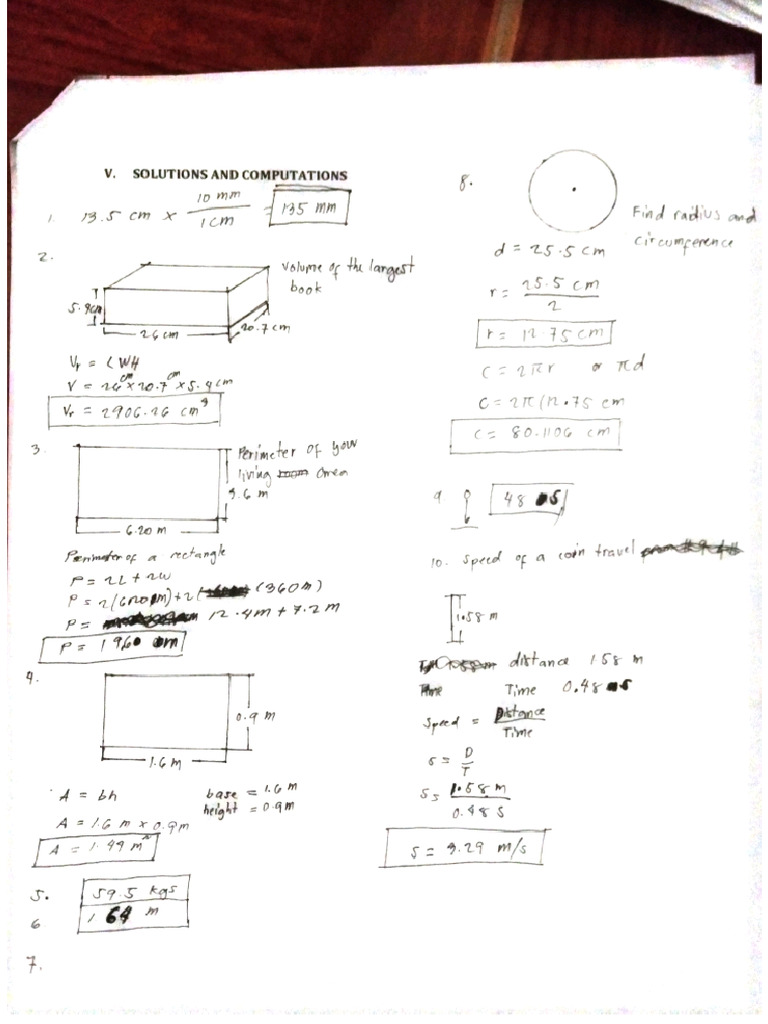 V. SOLUTIONS AND COMPUTATIONS
1. 13.5 cm × 10 mm / 1 cm = 135 mm
2.
Volume of the largest
book
5.4cm
26 cm
20.7 cm
Vr = LWH
V = 26 cm × 20.7 cm × 5.4 cm
Vr = 2906.26 cm³
3.
Perimeter of your
living area
3.6 m
6.20 m
Perimeter of a rectangle
P = 2L + 2W
P = 2(6.20 m) + 2(3.60m)
P = 12.4m + 7.2 m
P = 19.60 m
4.
0.9 m
1.6 m
A = bh base = 1.6 m
height = 0.9m
A = 1.6 m × 0.9m
A = 1.44 m²
5. 59.5 kgs
6 1.64 m
7.
8.
Find radius and
circumference
d = 25.5 cm
r = 25.5 cm / 2
r = 12.75 cm
C = 2πr or πd
C = 2π(12.75 cm
C = 80.1106 cm
9 .48 s
10. Speed of a coin travel
1.58 m
distance 1.58 m
Time 0.48 s
Speed = Distance / Time
s = D / T
s = 1.58 m / 0.48 s
s = 3.29 m/s